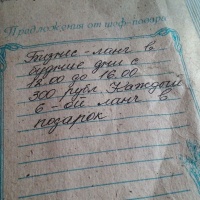 Предложения от шеф-повара
Бизнес-ланч в
будние дни с
12.00 до 16.00
300 рубл. Каждый
6-ой ланч в
подарок.